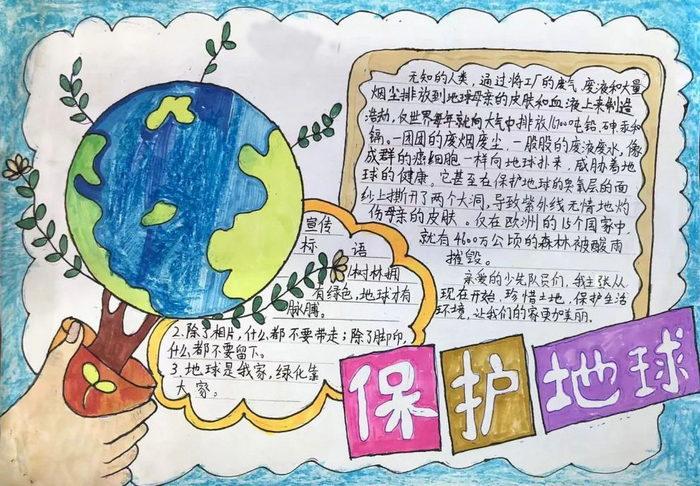 无知的人类，通过将工厂的废气、废液和大量
烟尘排放到地球母亲的皮肤和血液上来制造
浩劫，仅世界每年就向大气中排放 吨铅、砷、汞和
镉。一团团的废烟废尘，一股股的废液废水，像
成群的癌细胞一样向地球扑来，威胁着地
球的健康。它甚至在保护地球的臭氧层的面
纱上撕开了两个大洞，导致紫外线无情地灼
伤母亲的皮肤。仅在欧洲的15个国家中，
就有4600万公顷的森林被酸雨
摧毁。
亲爱的少先队员们，我主张从
现在开始，珍惜土地，保护生活
环境，让我们的 更加美丽。
宣传
标 语
树林拥
有绿色，地球才有
脉搏。
2.除了相片，什么都不要带走；除了脚印，
什么都不要留下。
3.地球是我家，绿化靠
大家。
保护地球